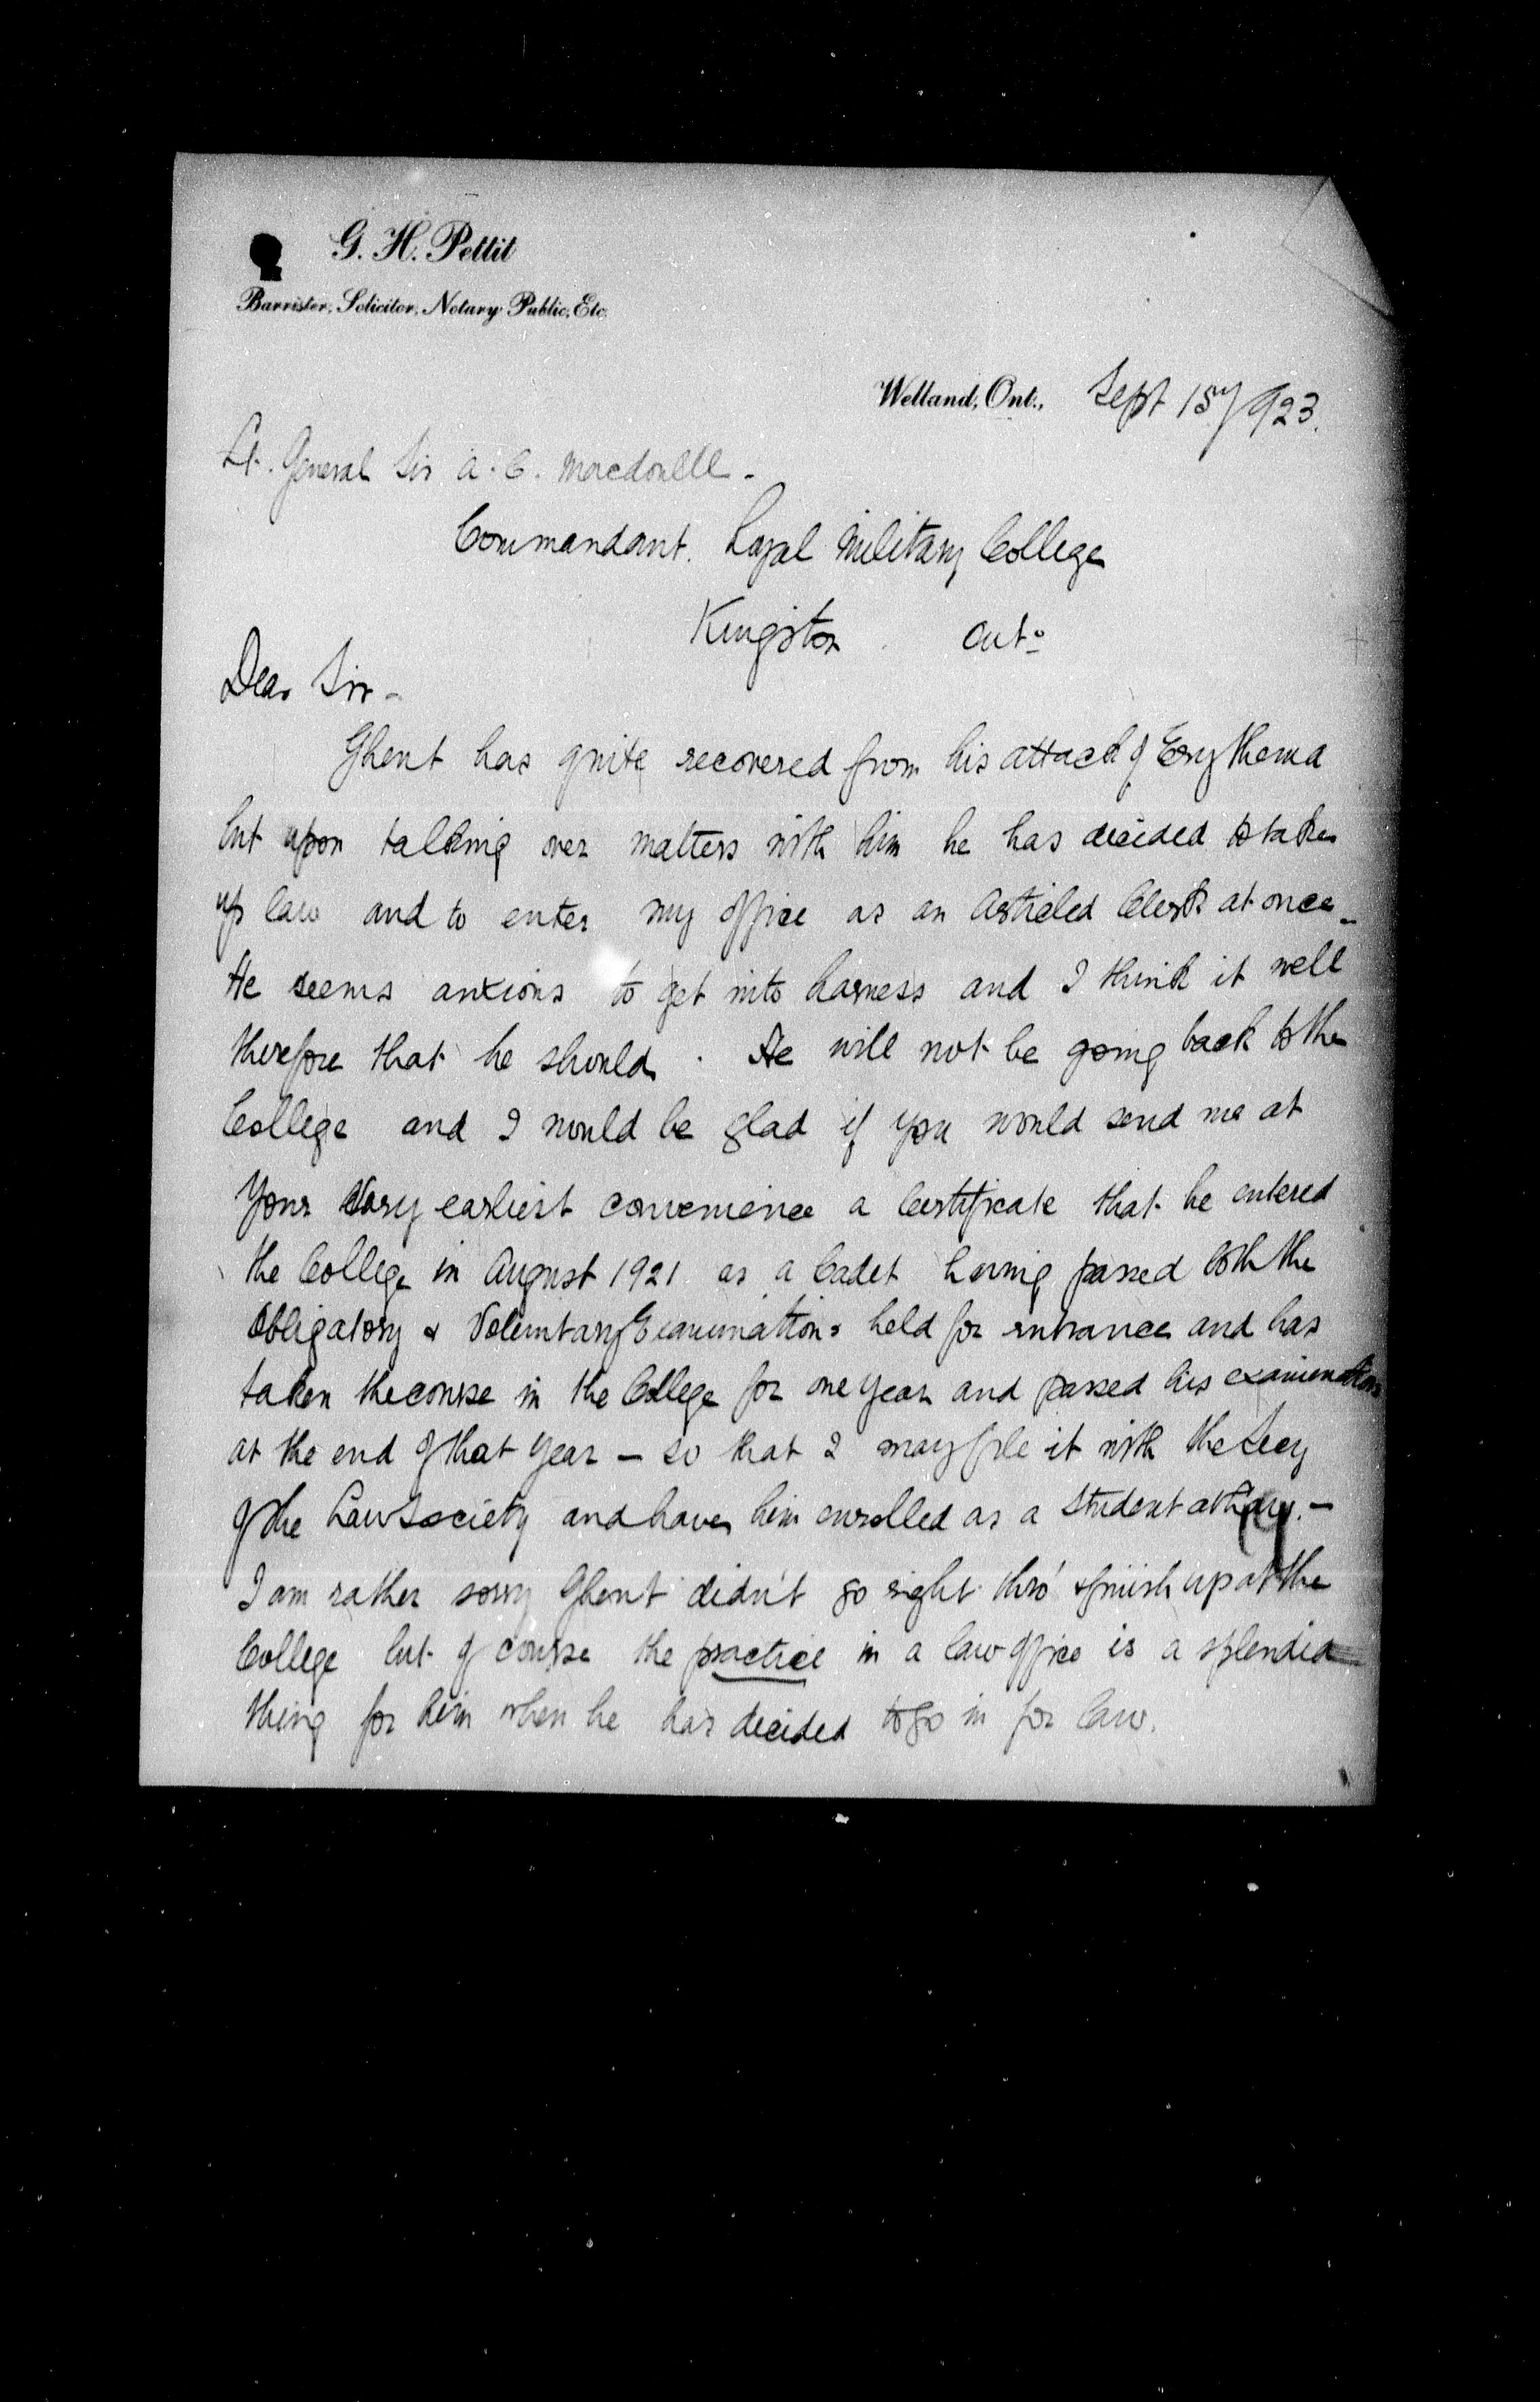 G. H. Pettit
Barrister, Solicitor, Notary Public, Etc.
Welland, Ont., Sept 15th/923.
Lt. General Sir A. C. Macdonell -
Commandant. Royal Military College
Kingston Ont.
Dear Sir -
Ghent has quite recovered from his attack of Erythema
but upon talking over matters with him he has decided to take
up law and to enter my office as an Articled Clerk at once -
He seems anxious to get into harness and I think it well
therefore that he should. He will not be going back to the
College and I would be glad if you would send me at
Your very earliest convenience a Certificate that he entered
the College in August 1921 as a Cadet having passed both the
Obligatory & Voluntary Examinations held for entrance and has
taken the course in the College for one year and passed his examinations
at the end of that year - so that I may file it with the Secy
of the Law Society and have him enrolled as a Student at Law. -
I am rather sorry Ghent didn't go right thro' & finish up at the
College but of course the practice in a law office is a splendid
thing for him when he has decided to go in for law.